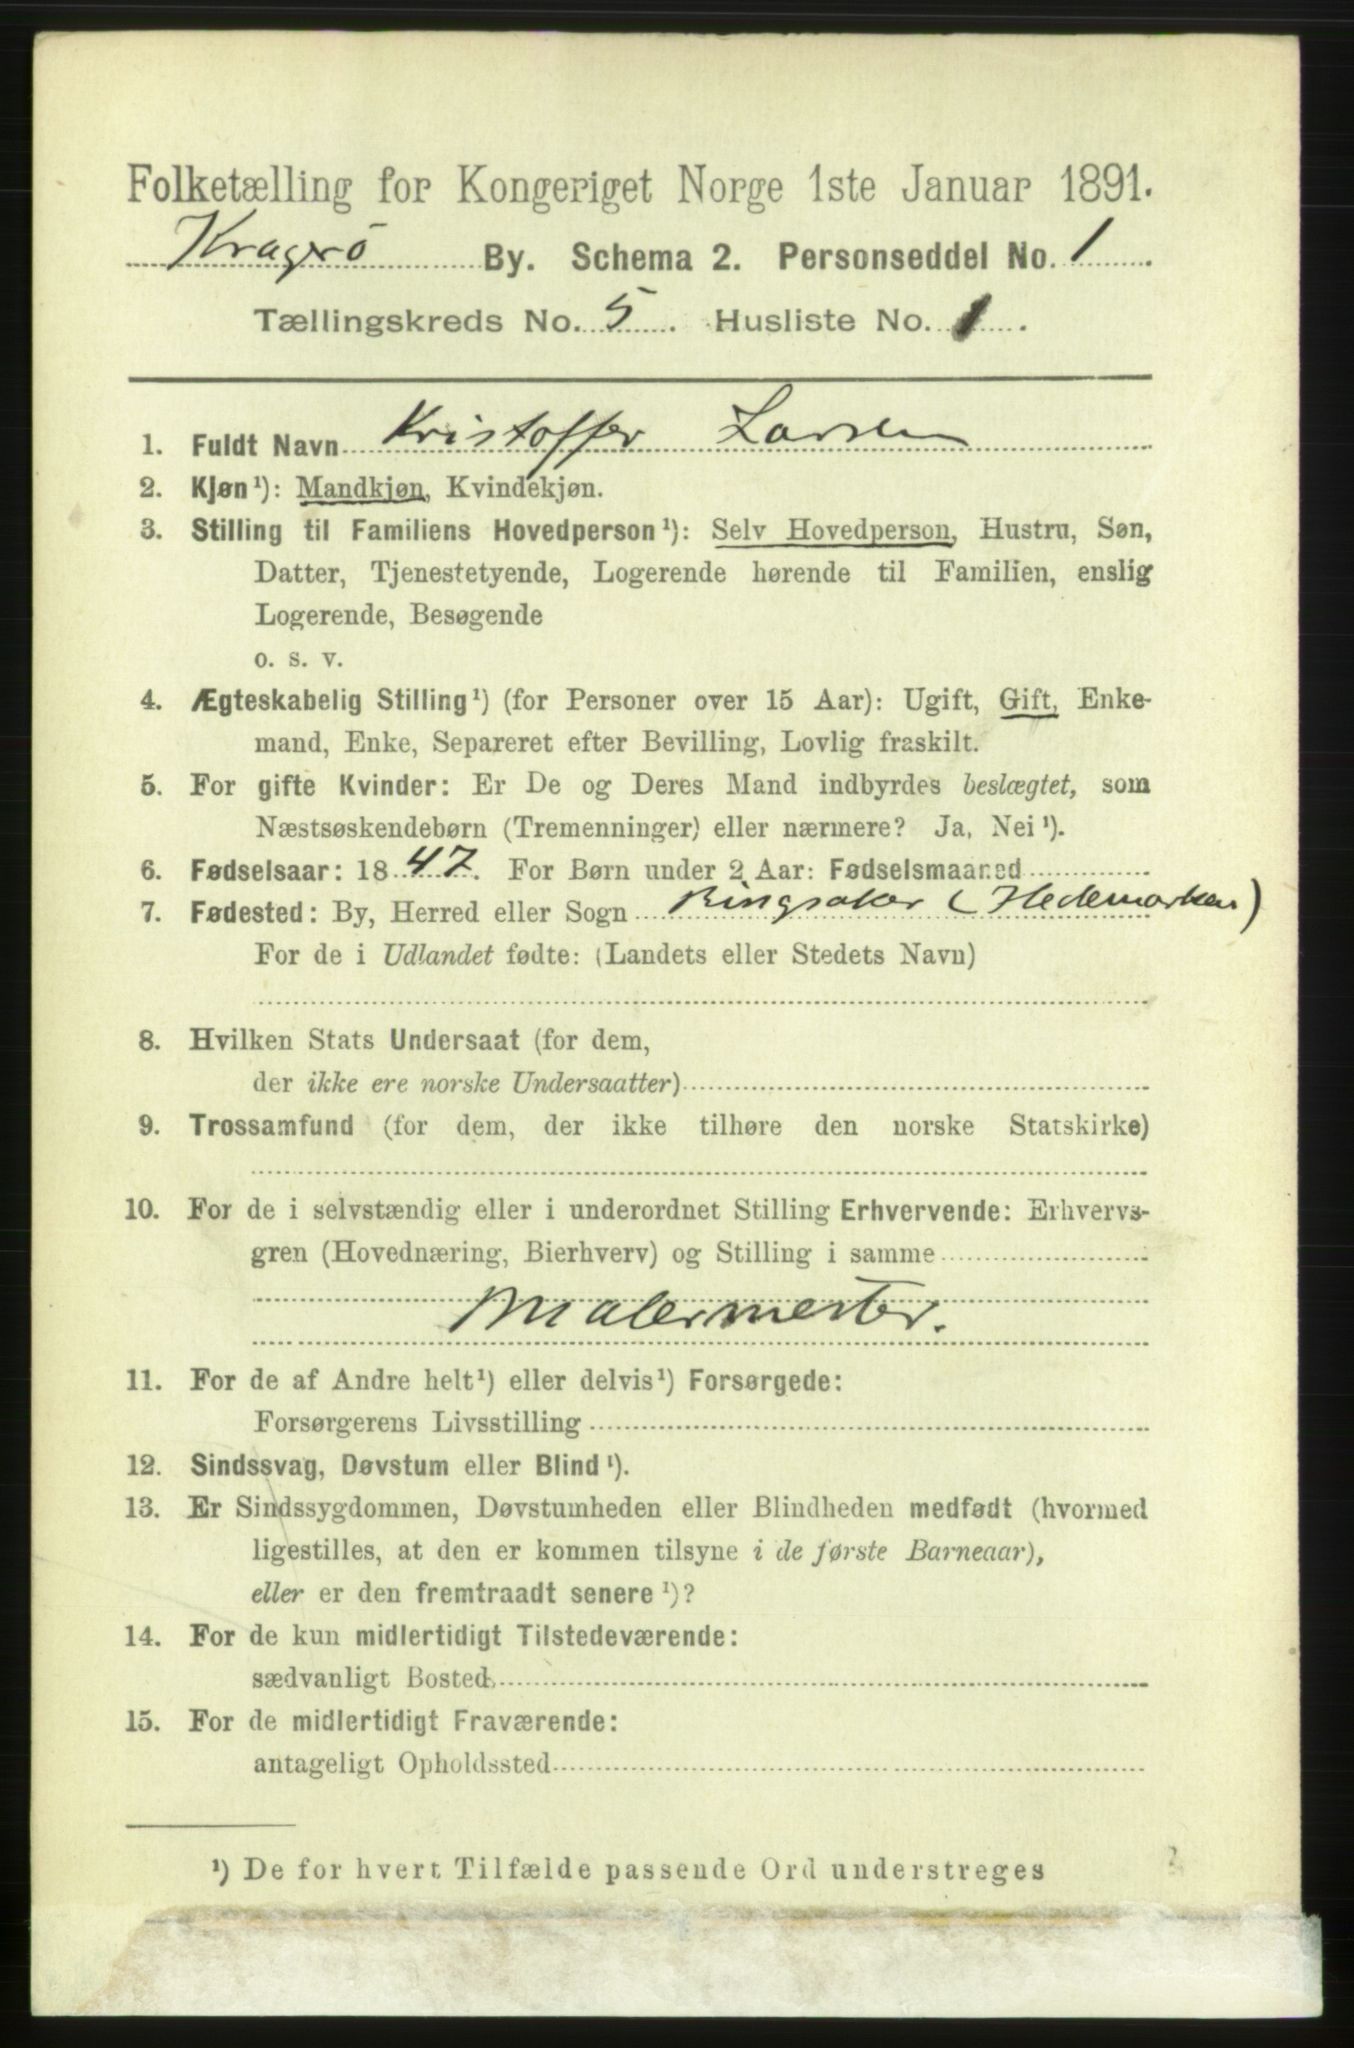 Folketælling for Kongeriget Norge 1ste Januar 1891.
Kragerö By. Schema 2. Personseddel No. 1
Tællingskreds No. 5. Husliste No. 1.
1. Fuldt Navn Kristoffer Larsen
2. Kjøn¹): Mandkjøn, Kvindekjøn.
3. Stilling til Familiens Hovedperson¹): Selv Hovedperson, Hustru, Søn,
Datter, Tjenestetyende, Logerende hørende til Familien, enslig
Logerende, Besøgende
o. s. v.
4. Ægteskabelig Stilling¹) (for Personer over 15 Aar): Ugift, Gift, Enke-
mand, Enke, Separeret efter Bevilling, Lovlig fraskilt.
5. For gifte Kvinder: Er De og Deres Mand indbyrdes beslægtet, som
Næstsøskendebørn (Tremenninger) eller nærmere? Ja, Nei¹).
6. Fødselsaar: 1847. For Børn under 2 Aar: Fødselsmaaned
7. Fødested: By, Herred eller Sogn Ringsaker (Hedemarken)
For de i Udlandet fødte: (Landets eller Stedets Navn)
8. Hvilken Stats Undersaat (for dem,
der ikke ere norske Undersaatter)
9. Trossamfund (for dem, der ikke tilhøre den norske Statskirke)
10. For de i selvstændig eller i underordnet Stilling Erhvervende: Erhvervs-
gren (Hovednæring, Bierhverv) og Stilling i samme
Malermester.
11. For de af Andre helt¹) eller delvis¹) Forsørgede:
Forsørgerens Livsstilling
12. Sindssvag, Døvstum eller Blind¹).
13. Er Sindssygdommen, Døvstumheden eller Blindheden medfødt (hvormed
ligestilles, at den er kommen tilsyne i de første Barneaar),
eller er den fremtraadt senere¹)?
14. For de kun midlertidigt Tilstedeværende:
sædvanligt Bosted
15. For de midlertidigt Fraværende:
antageligt Opholdssted
¹) De for hvert Tilfælde passende Ord understreges